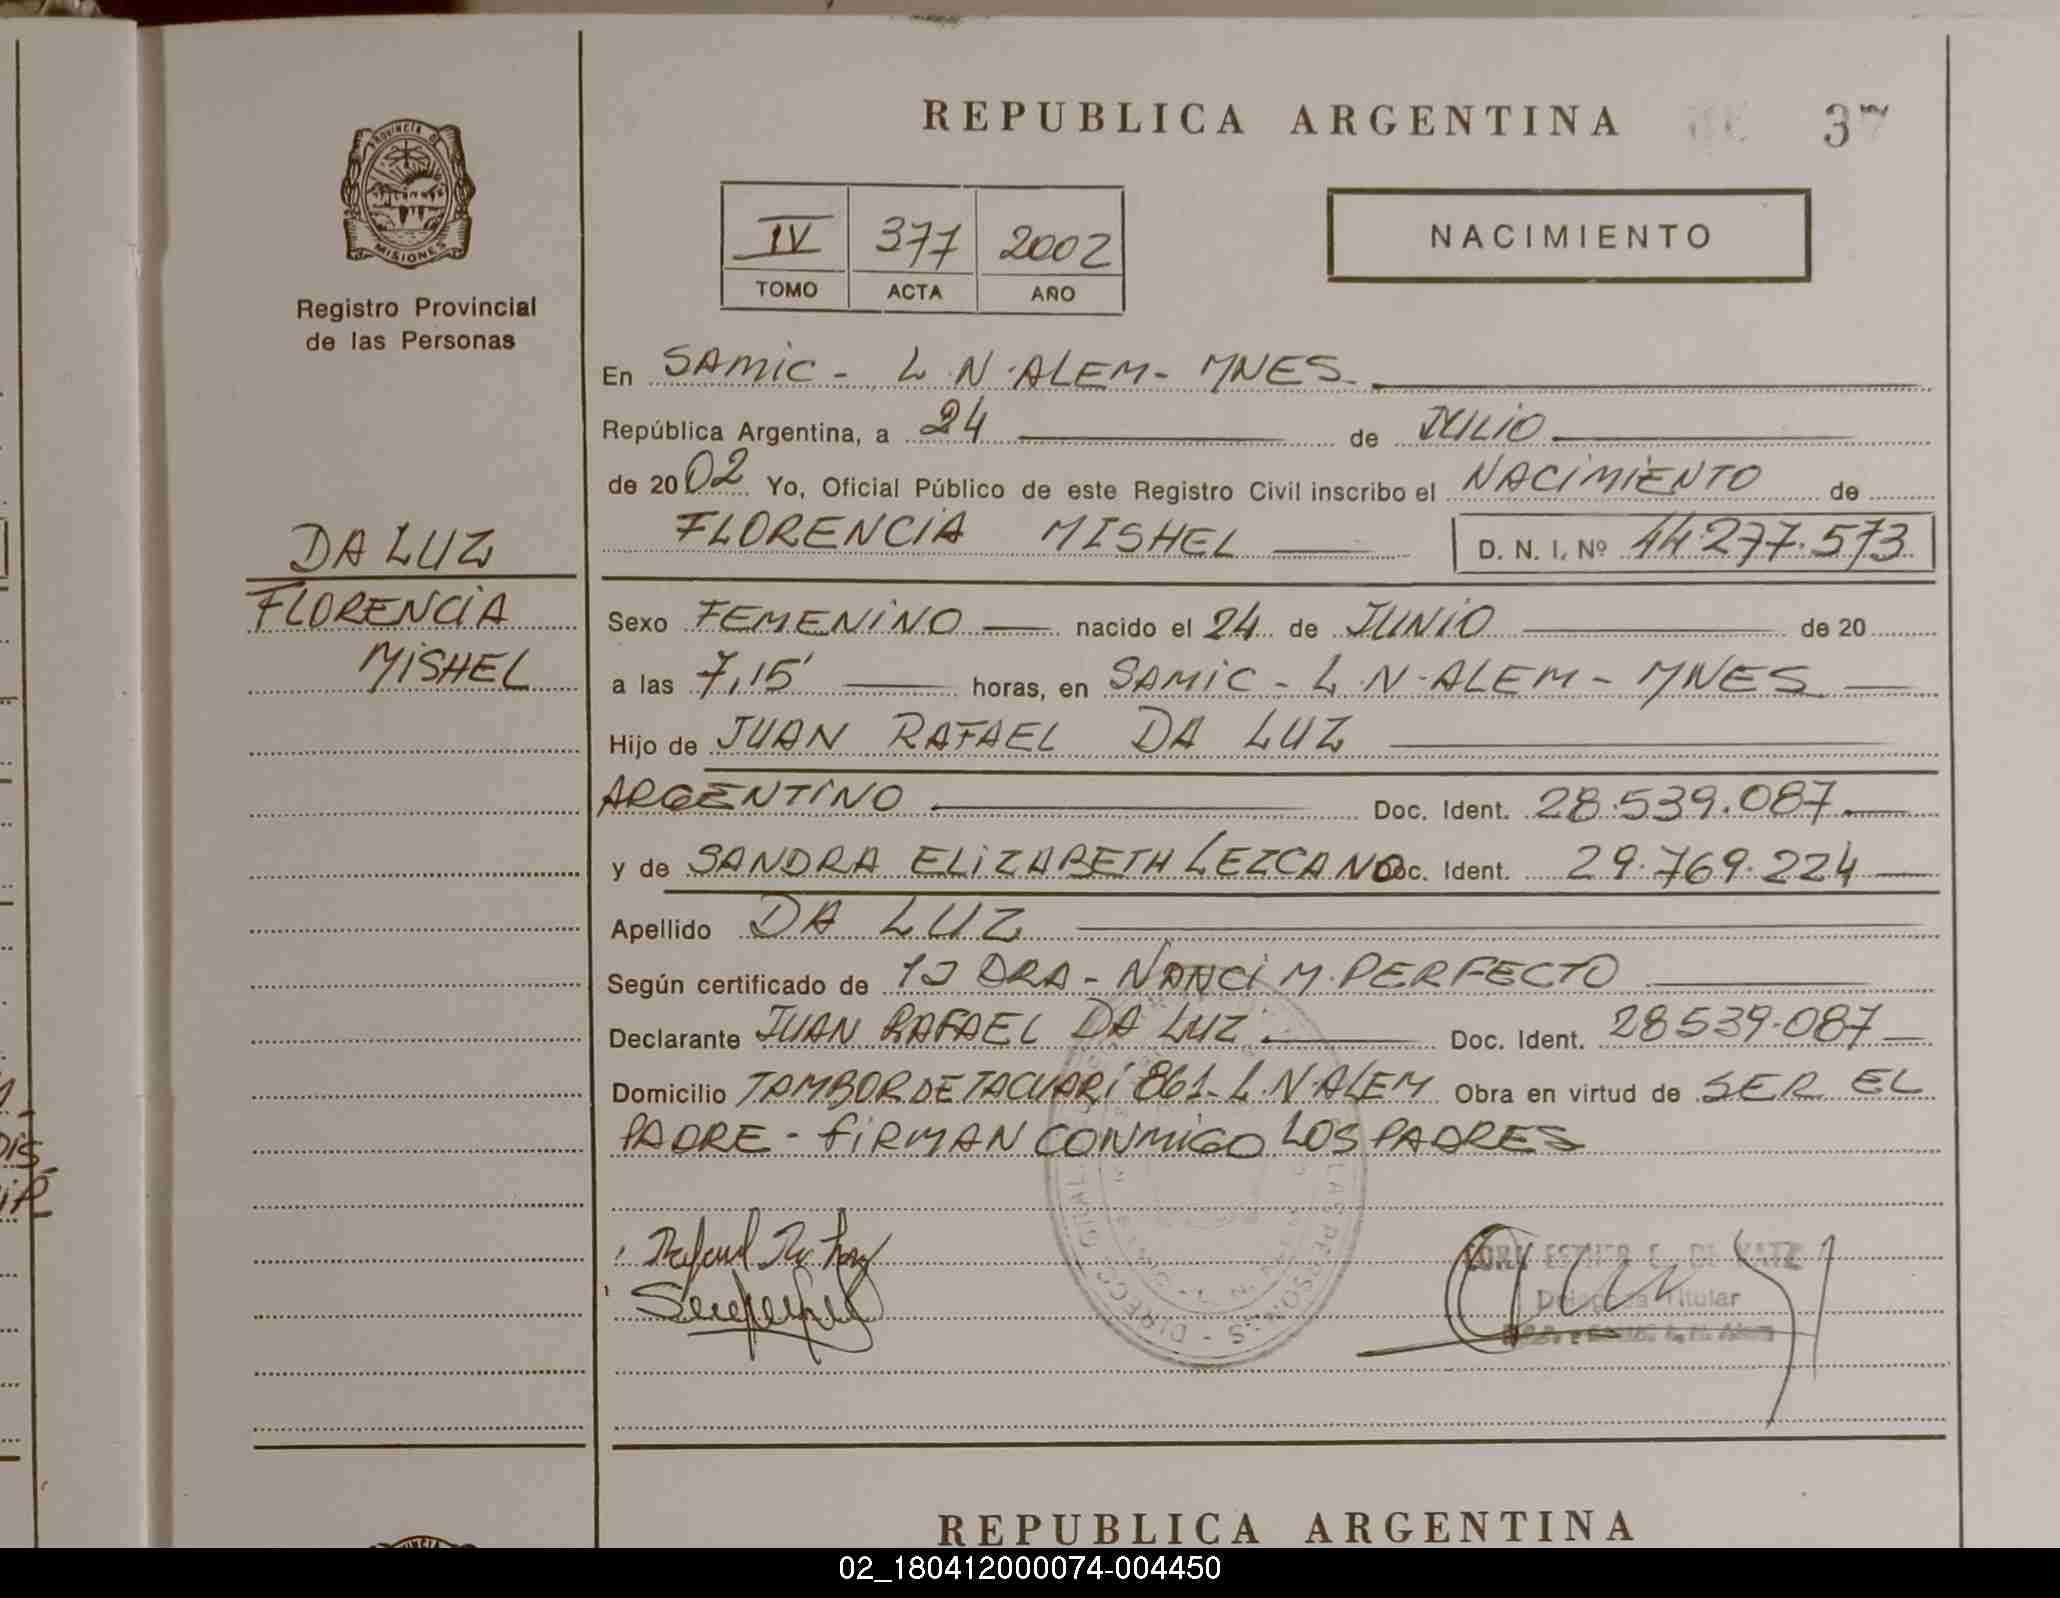 REPUBLICA ARGENTINA
37
PROVINCIA DE
MISIONES
Registro Provincial
de las Personas
IV 377 2002
TOMO ACTA AÑO
NACIMIENTO
En SAMIC - L. N. ALEM - MNES
República Argentina, a 24 de JULIO
de 2002 Yo, Oficial Público de este Registro Civil inscribo el NACIMIENTO de
FLORENCIA MISHEL D. N. I. Nº 44.277.573
DA LUZ
FLORENCIA
MISHEL
Sexo FEMENINO nacido el 24 de JUNIO de 20
a las 7,15' horas, en SAMIC - L. N. ALEM - MNES
Hijo de JUAN RAFAEL DA LUZ
ARGENTINO Doc. Ident. 28.539.087
y de SANDRA ELIZABETH LEZCANO Doc. Ident. 29.769.224
Apellido DA LUZ
Según certificado de DRA - NANCI M. PERFECTO
Declarante JUAN RAFAEL DA LUZ Doc. Ident. 28539.087
Domicilio TAMBOR DE TACUARI 861 - L. N. ALEM Obra en virtud de SER EL
PADRE - FIRMAN CONMIGO LOS PADRES
Titular
REPUBLICA ARGENTINA
02_180412000074-004450